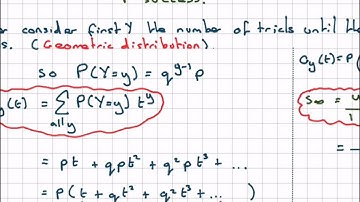 success.
consider first Y the number of trials until
(Geometric distribution).
so P(Y=y) = q^{y-1} p
(t) = ∑ P(Y=y) t^y
all y
= pt + qpt² + q²pt³ + ...
= p(t + qt² + q²t³ + ... )
G_y(t) = p(
S∞ =
1
=